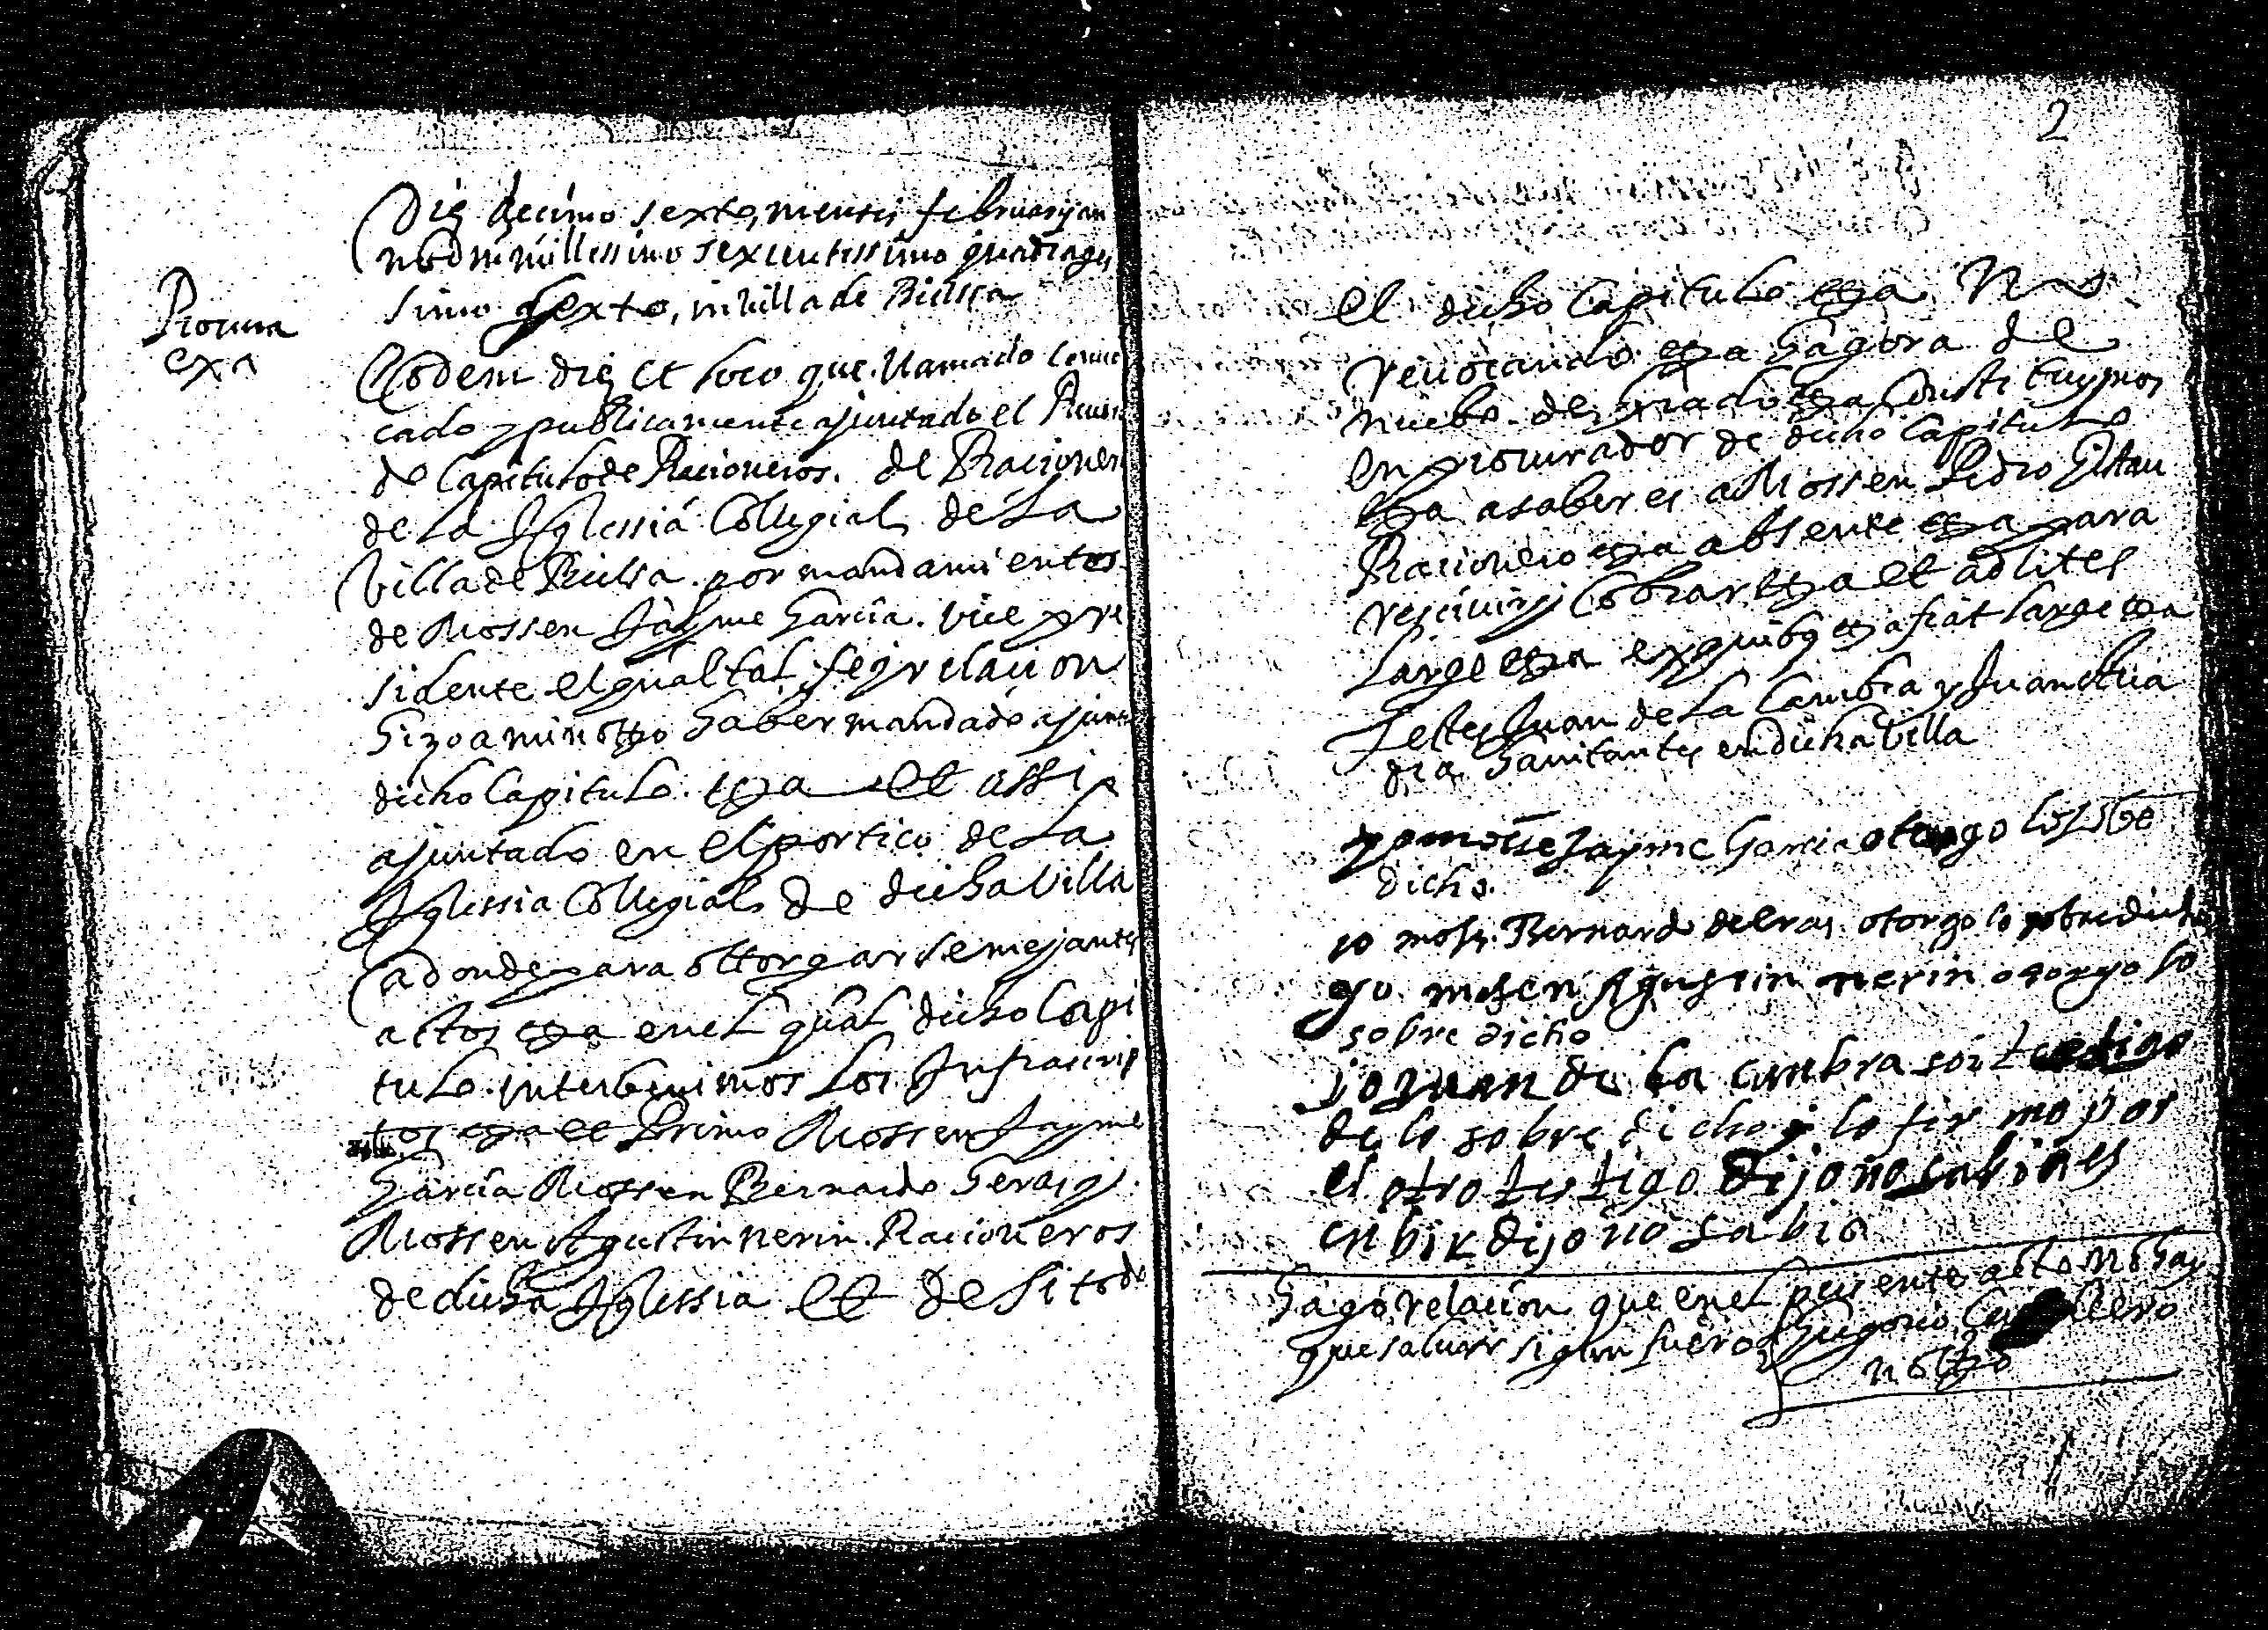 Procura
exa
Die decimo sexto, mensis februarij an
no dni millessimo sexcentissimo quadrages
simo sexto, in billa de Bielssa
Eodem die et loco que. llamado convo
cado y publicamente ajuntado el
de Capitulo de Racioneros. de Racioneros
de La Iglessia Collegial de La
Villa de Bielsa. por mandamientos
de Mossen Jayme Garcia. vice pre
sidente el qual tal fe y relacion
hizo a mi notto haber mandado ajunta
dicho Capitulo. etza et assi
ajuntado en el portico de La
Iglessia Collegial de dicha Villa
adonde para ottorgar semejantes
actos etza en el qual dicho Capi
tulo. interbenimos Los Infrascrip
tos etza et Primo Mossen Jayme
Garcia Mossen Bernardo heras y
Mossen Agustin nerin. Racioneros
de dicha Iglessia et de si todo
2
el dicho Capitulo etza
revocando etza hagora de
nuebo. de grado etza Constituymos
en procurador de dicho Capitulo
etza asaber es a Mossen Pedro
Racionero etza absente etza para
rescivir y Cobrar etza et ad lites
Large etza ex quibus etza fiat large etza
Testes Juan de La Cambra y Juan
dia havitantes en dicha Villa
yo mossen Jayme Garcia otorgo lo sobre
dicho.
io mosen Bernardo de eras otorgo lo sobredicho
yo mosen Agustin nerin otorgo lo
sobre dicho
io Juan de la cambra soi testigo
de lo sobre dicho y lo firmo por
el otro testigo dijo no sabia es
cribir dijo no sabia
hago relacion que en el presente acto no hay
que salvar sigun fuero
notto